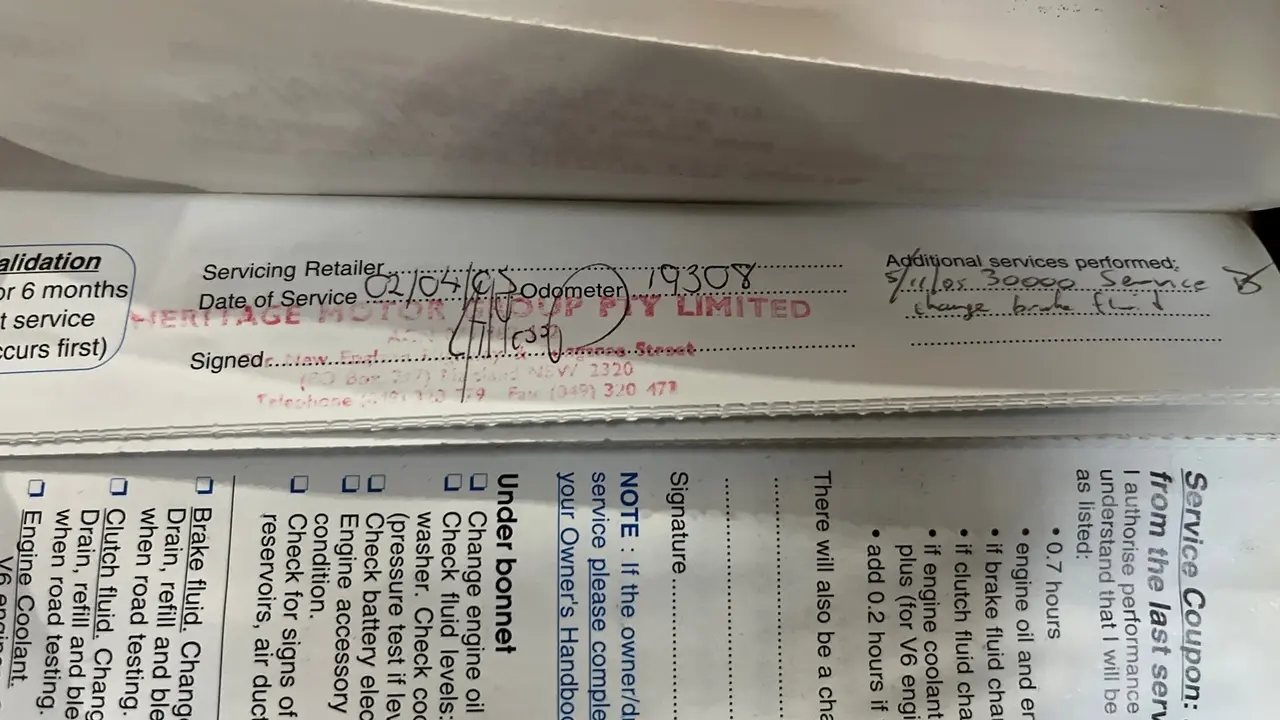 alidation
or 6 months
t service
ccurs first)
Servicing Retailer
Date of Service 02/04/05 Odometer 19308
HERITAGE MOTOR GROUP PTY LIMITED
Signed
New England Street
(PO Box NSW 2320
Telephone Fax (049) 320 477
Additional services performed:
5/11/05 30000 Service
change brake fluid
Service Coupon:
from the last serv
I authorise performance
understand that I will be
as listed:
• 0.7 hours
• engine oil and en
• if brake fluid chan
• if clutch fluid cha
• if engine coolant
plus (for V6 engi
• add 0.2 hours if
There will also be a cha
Signature
NOTE : If the owner/d
service please comple
your Owner's Handboo
Under bonnet
❑ Change engine oil
❑ Check fluid levels:
washer. Check coo
(pressure test if lev
❑ Check battery elec
❑ Engine accessory
condition.
❑ Check for signs of
reservoirs, air duct
❑ Brake fluid. Change
Drain, refill and ble
when road testing.
❑ Clutch fluid. Chang
Drain, refill and ble
when road testing.
❑ Engine Coolant.
V6 engin